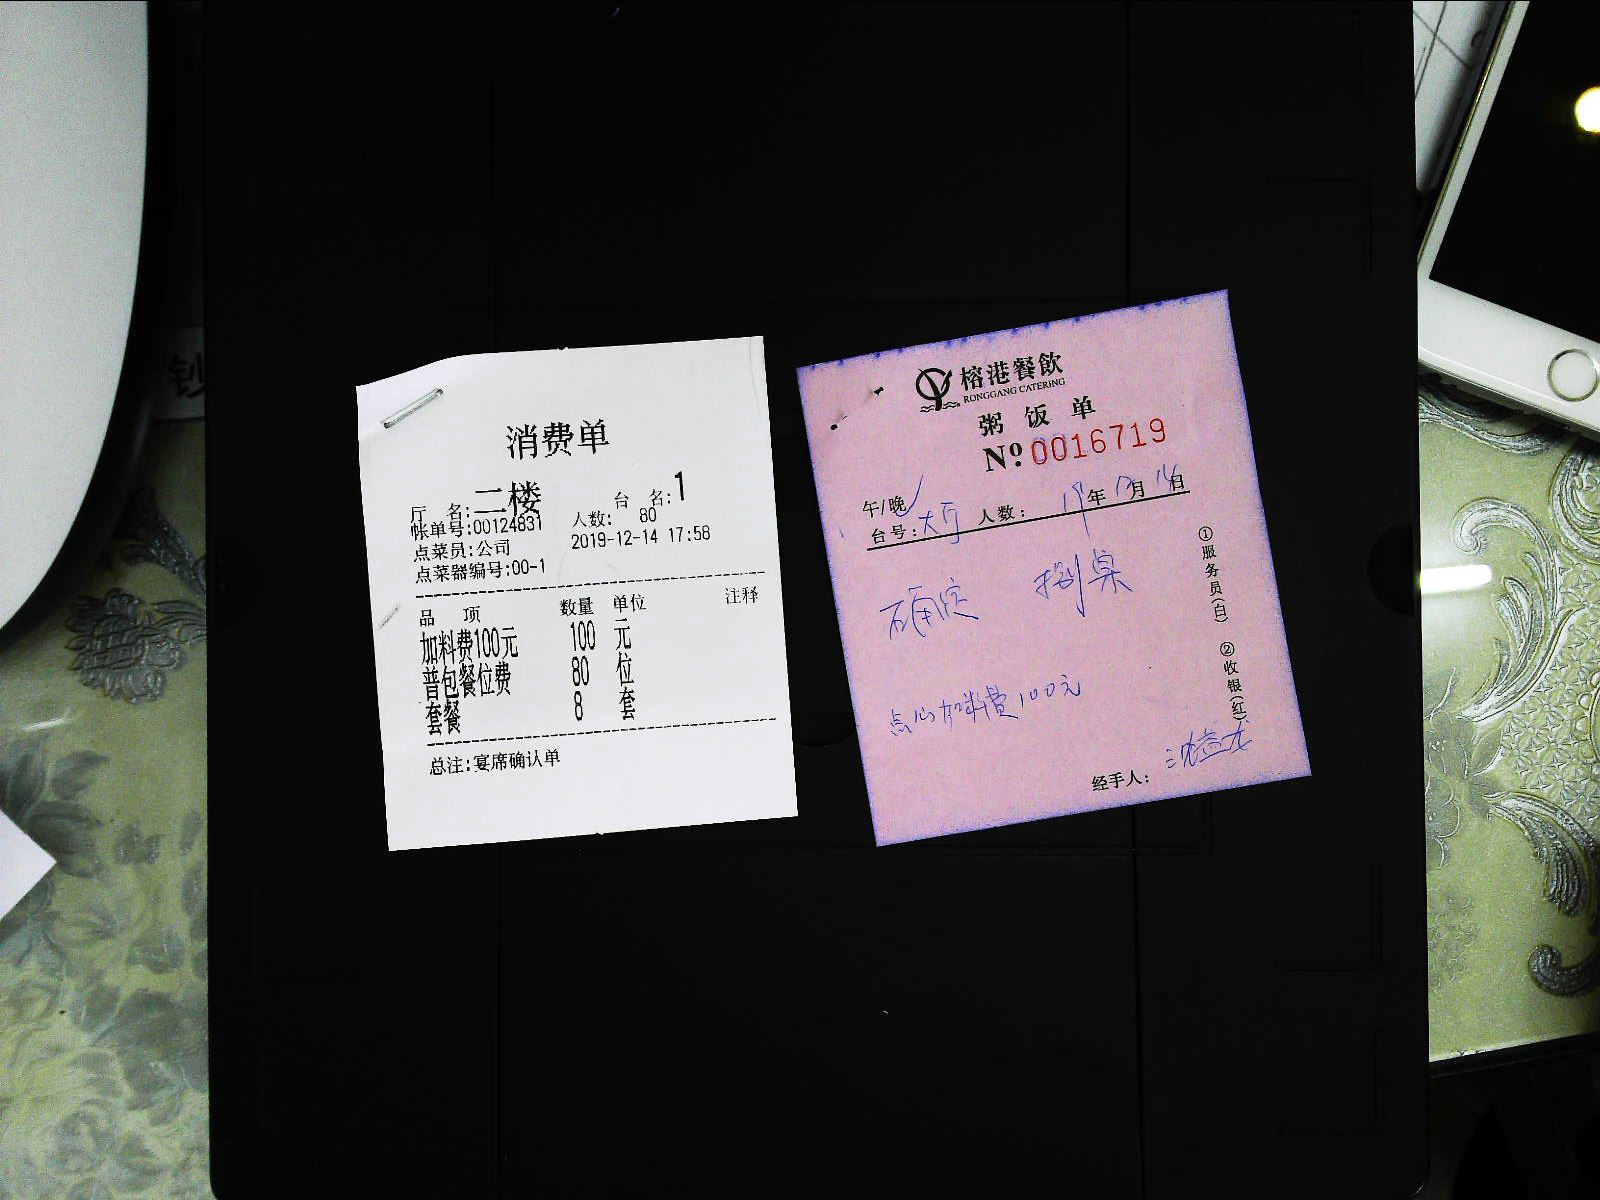 消费单
厅 名:二楼 台 名:1
帐单号:00124831 人数: 80
点菜员:公司 2019-12-14 17:58
点菜器编号:00-1
品 项 数量 单位 注释
加料费100元 100 元
普包餐位费 80 位
套餐 8 套
总注:宴席确认单
榕港餐飲
RONGGANG CATERING
粥饭单
Nº 0016719
午/晚
台号:大厅 人数: 19年12月14日
确定 捌桌
点心加料费100元
①服务员(白) ②收银(红)
经手人:
钞